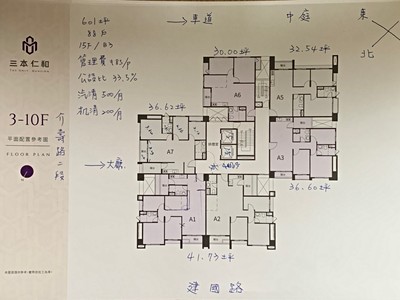 三本仁和
3-10F
平面配置參考圖
FLOOR PLAN
介壽路二段
601坪
88戶
15F/B3
公設比 33.5%
汽清 500/月
机清 200/月
→車道
中庭
東
北
30.00坪
32.54坪
36.62坪
→大廳
A6
A5
A7
A3
A1
A2
36.60坪
41.73坪
建國路